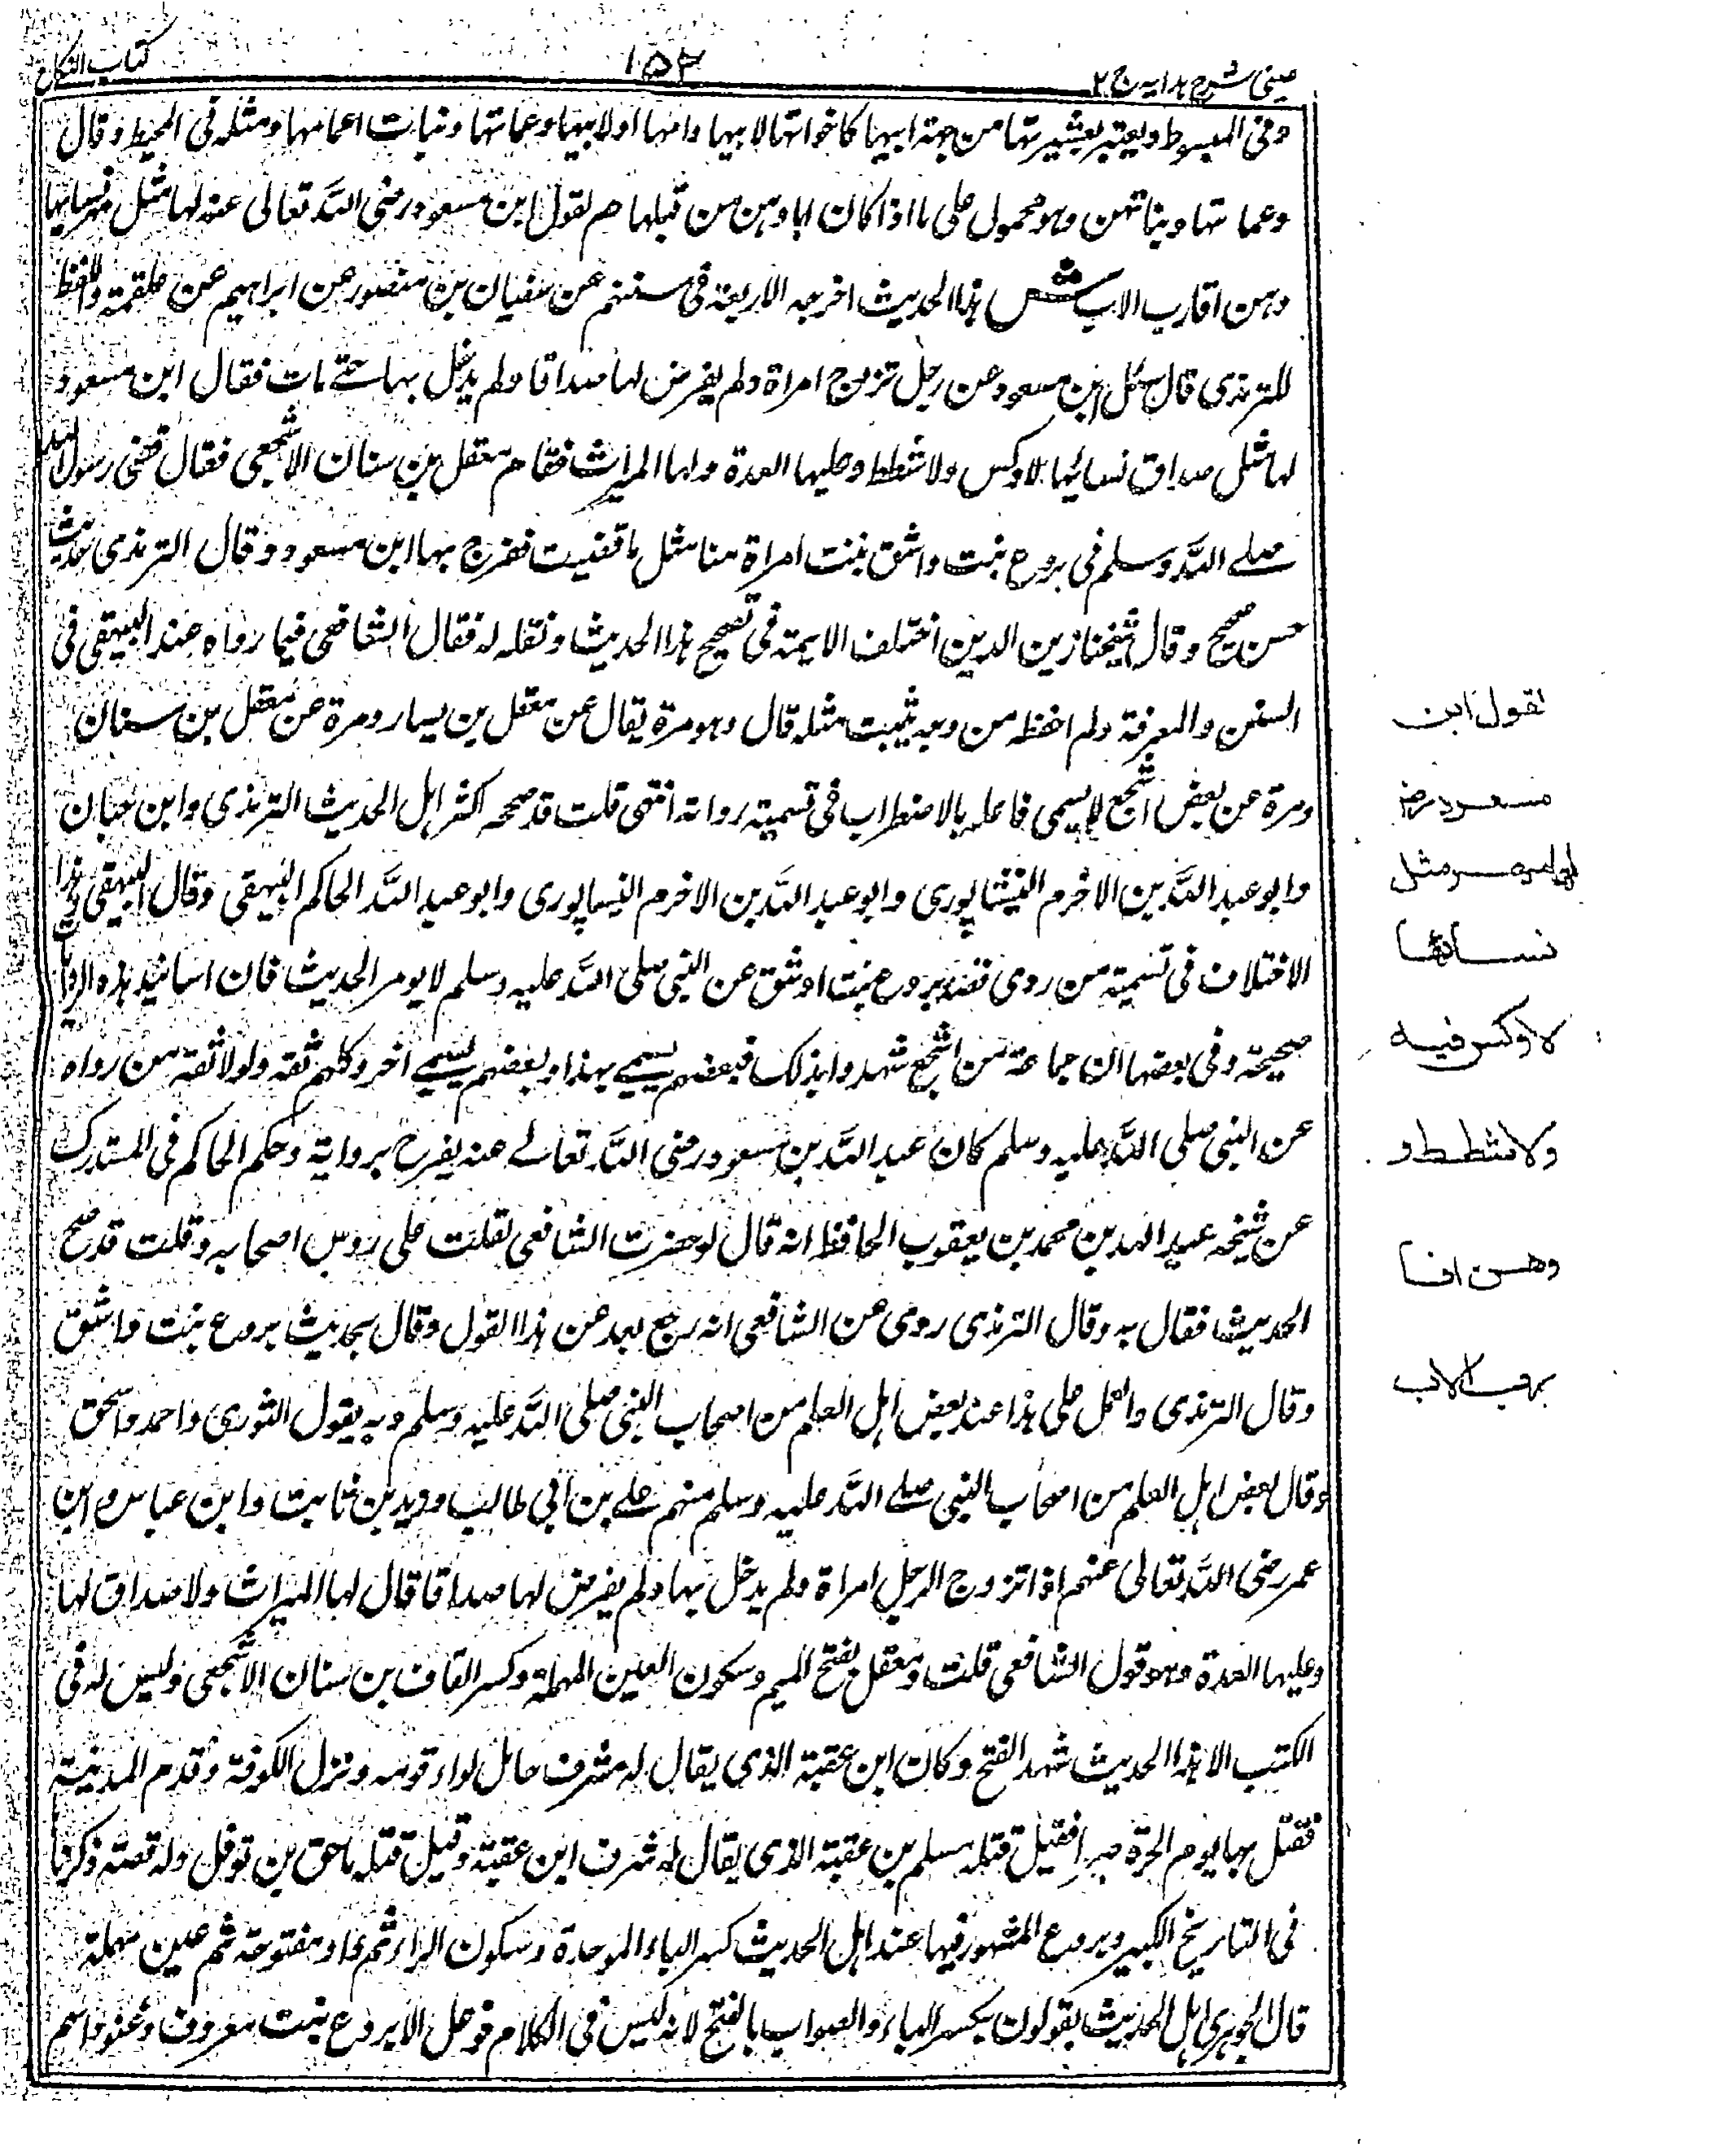 عینی شرح ہدایہ ج ٢
١٥٣
کتاب النکاح
وفی المبسوط ویعتبر بعشیرتها من جهة ابیها کاخواتها لابیها وامها اولابیها وعماتها وبنات اعمامها ومثله فی المحیط وقال
وعماتها وبناتهن وهو محمول علی ما اذا کان اباوهن من قبلها م لقول ابن مسعود رضی الله تعالی عنه لها مثل مهر نسایها
وهن اقارب الاب ش هذا الحدیث اخرجه الاربعة فی سننهم عن سفیان بن منصور عن ابراهیم عن علقمة واللفظ
للترمذی قال سئل ابن مسعود عن رجل تزوج امراة ولم یفرض لها صداقا ولم یدخل بها حتے مات فقال ابن مسعود
لها مثل صداق نسائیها لاوکس ولا شطط وعلیها العدة ولها المیراث فقام معقل بن سنان الاشجعی فقال قضی رسول الله
صلے الله وسلم فی بروع بنت واشق بنت امراة منا مثل ما قضیت ففرح بها ابن مسعود وقال الترمذی حدیث
حسن صحیح وقال شیخنا زین الدین اختلف الایمة فی تصحیح هذا الحدیث ونقله له فقال الشافعی فیما رواه عند البیهقی فی
السنن والمعرفة ولم احفظه من وجه یثبت مثله قال وهو مرة یقال عن معقل بن یسار ومرة عن معقل بن سنان
ومرة عن بعض اشجع لا یسمی فاعله بالاضطراب فی تسمیة رواته انتهی قلت قد صححه اکثر اهل الحدیث الترمذی وابن حبان
وابو عبد الله بن الاخرم النیشاپوری وابو عبد الله بن الاخرم النیساپوری وابو عبد الله الحاکم البیهقی وقال البیهقی فی هذا
الاختلاف فی تسمیة من روی قصة بروع بنت اوشق عن النبی صلی الله علیه وسلم لا یومر الحدیث فان اسانید هذه الروایات
صحیحة وفی بعضها ان جماعة من اشجع شهدوا بذلک فبعضهم یسمے بهذا وبعضهم یسمے اخر وکلهم ثقه ولولا ثقة من رواه
عن النبی صلی الله علیه وسلم کان عبد الله بن مسعود رضی الله تعالے عنه یفرح بروایة وحکم الحاکم فی المستدرک
عن شیخه عبد الله بن محمد بن یعقوب الحافظ انه قال لو حضرت الشافعی لقلت علی روس اصحابه وقلت قد صح
الحدیث فقال به وقال الترمذی روی عن الشافعی انه رجع بعد عن هذا القول وقال بحدیث بروع بنت واشق
وقال الترمذی والعمل علی هذا عند بعض اهل العلم من اصحاب النبی صلی الله علیه وسلم وبه یقول الثوری واحمد واسحق
وقال بعض اهل العلم من اصحاب النبی صلے الله علیه وسلم منهم علے بن ابی طالب وزید بن ثابت وابن عباس وابن
عمر رضی الله تعالی عنهم اذا تزوج الرجل امراة ولم یدخل بها ولم یفرض لها صداقا قال لها المیراث ولا صداق لها
وعلیها العدة وهو قول الشافعی قلت ومعقل بفتح المیم وسکون العین المهملة وکسر القاف بن سنان الاشجعی ولیس له فی
الکتب الا هذا الحدیث شهد الفتح وکان ابن عقبة الذی یقال له مشرف حامل لواء قومه ونزل الکوفة وقدم المدینة
فقتل بها یوم الحرة صبرا فقیل قتله مسلم بن عقبة الذی یقال له شرف ابن عقبة وقیل قتله ماحق بن نوفل وله قصة ذکرنا
فی التاریخ الکبیر وبروع المشهور فیها عند اهل الحدیث کسر الباء الموحدة وسکون الراء ثم واو مفتوحة ثم عین مهملة
قال الجوهری اهل الحدیث یقولون بکسر الباء والصواب بالفتح لانه لیس فی الکلام فوعل الا بروع بنت معروف وعنود اسم
لقول ابن
مسعود رضـ
لها مهر مثل
نسائها
لا وکس فیه
ولا شطط و
وهـن اقا
رب الاب